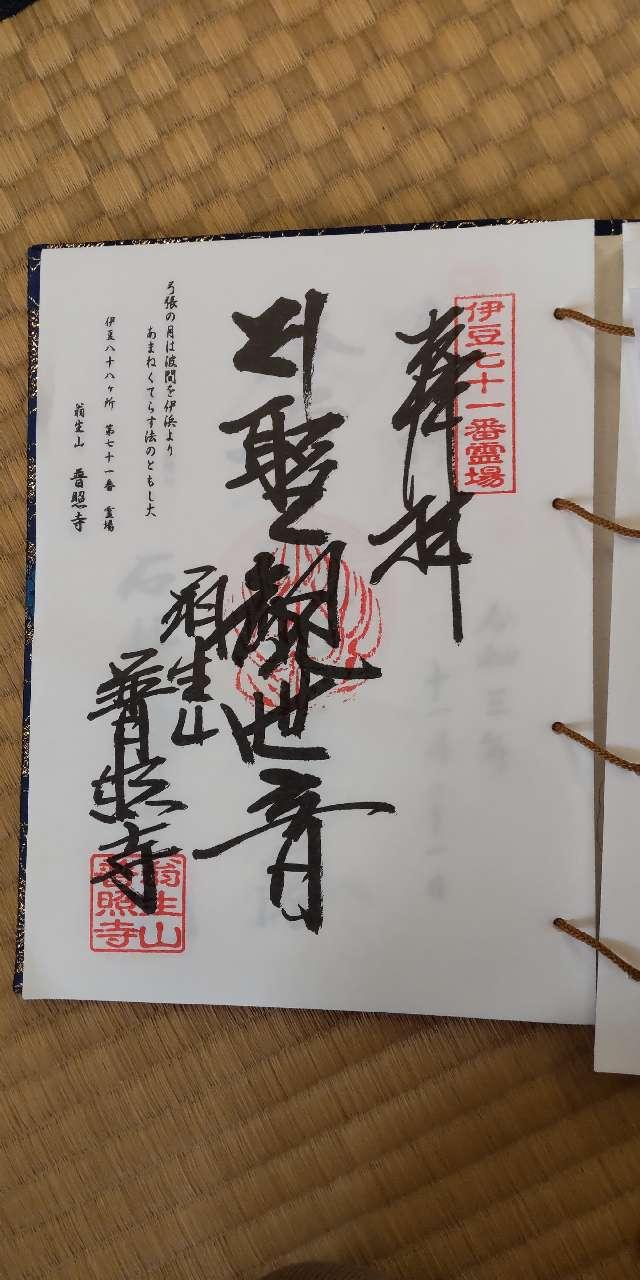 伊豆七十一番霊場
奉拝
聖観世音
翁生山
普照寺
弓張の月は波間を伊浜より
あまねくてらす法のともし火
伊豆八十八ヶ所 第七十一番 霊場
翁生山 普照寺
翁生山
普照寺